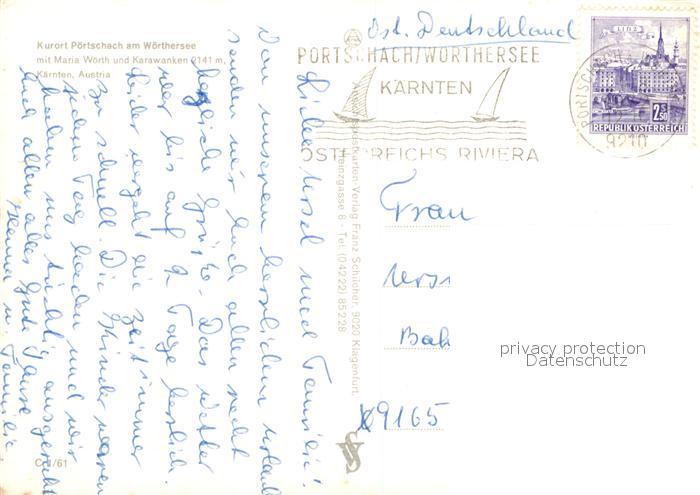 Kurort Pörtschach am Wörthersee
mit Maria Wörth und Karawanken 2141 m,
Kärnten, Austria
Ost. Deutschland
PÖRTSCHACH/WÖRTHERSEE
KÄRNTEN
ÖSTERREICHS RIVIERA
LINZ
2.S50
REPUBLIK ÖSTERREICH
9210
Liebe Ursel und Familie!
Von unserem herrlichen Urlaub
senden wir Euch allen recht
herzliche Grüße. Das Wetter
war bis auf 2 Tage herrlich.
Leider vergeht die Zeit immer
zu schnell. Die Kinder waren
jeden Tag baden und wir
haben uns tüchtig ausgeruht
Euch allen alles Gute
Familie
Postkarten-Verlag Franz Schilcher, 9020 Klagenfurt,
gasse 8 - Tel. (04222) 85228
C 1/61
Frau
Urs
9165
privacy protection
Datenschutz